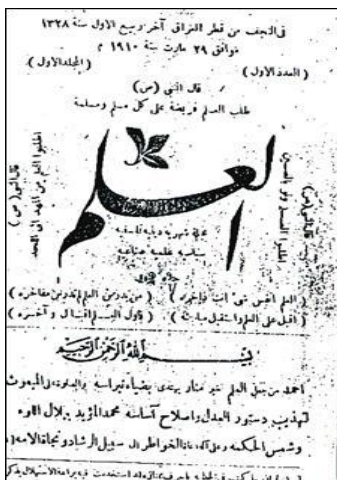 في النجف من قطر العراق آخر ربيع الاول سنة ١٣٢٨
موافق ٢٩ مارت سنة ١٩١٠ م
( العدد الاول ) ( المجلد الاول )
قال النبي (ص)
طلب العلم فريضة على كل مسلم ومسلمة
قال النبي (ص)
اطلبوا العلم من المهد الى اللحد
قال النبي (ص)
اطلبوا العلم ولو بالصين
العلم
مجلة شهرية دينية فلسفية
سياسية علمية صناعية
( العلم انفس شيء انت ذاخره ) ( من يدرس العلم لم تدرس مفاخره )
( اقبل على العلم واستقبل مباحثه ) ( فاول العلم اقبال وآخره )
بسم الله الرحمن الرحيم
احمد من جعل العلم خير منار يهتدى بضياء نبراسه والصلوة على المبعوث
لتهذيب دستور العدل واصلاح آساسه محمد المؤيد بجلال القوه
وشمس الحكمه وعلى آله هداة الخواطر الى سبيل الرشاد ونجاة الامه